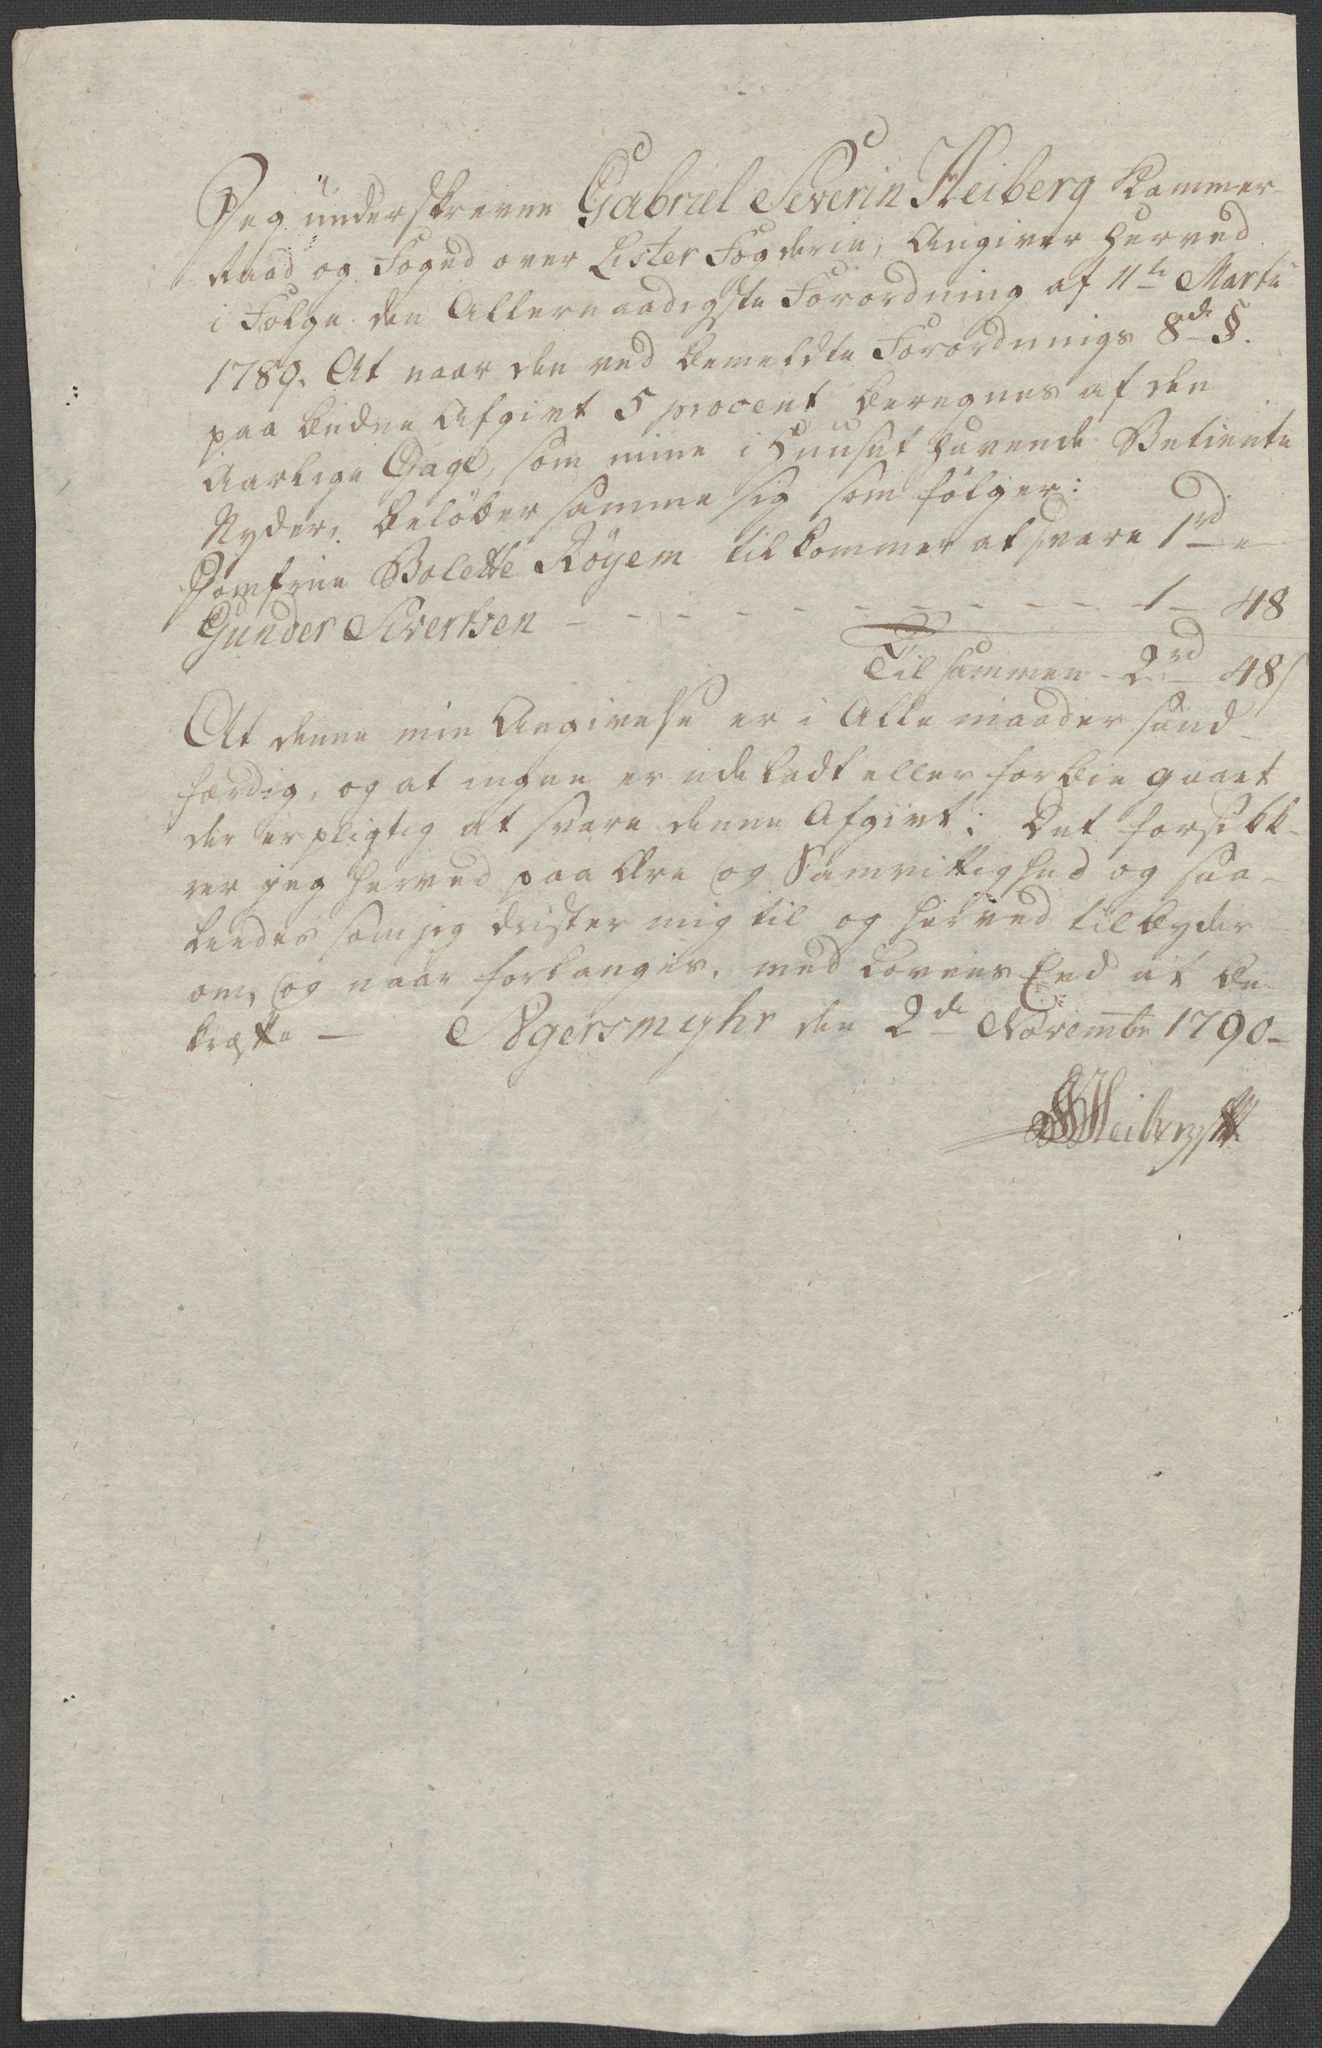 Jeg underskrevne Gabriel Severin Heiberg Kammer-
Raad og Foged over Lister Fogderie, Angiver herved
i Følge den Allernaadigste Forordning af 11te Martii
1789. At naar den ved bemeldte Forordnings 8de §.
paa budne Afgivt 5 procent beregnes af den
Aarlige Gage, som mine i Huuset havende Betiente
Nyder, beløber samme sig som følger:
Jomfrue Bolette Röyem tilkommer at svare 1rd "
Gunder Sivertsen - - - - - - - - - - 1 - 48
Tilsammen - 2rd 48 s
At denne min Angivelse er i Alle maader sand-
færdig, og at ingen er udeladt eller forbie gaaet
der er pligtig at svare denne Afgivt: Det forsikk-
rer jeg herved paa Ære og Samvittighed og saa-
ledes som jeg drister mig til og herved tilbyder
om, og naar forlanges, med Lovens Eed at be-
kræfte - Agersmyhr den 2de Novembr 1790-
GSHeiberg